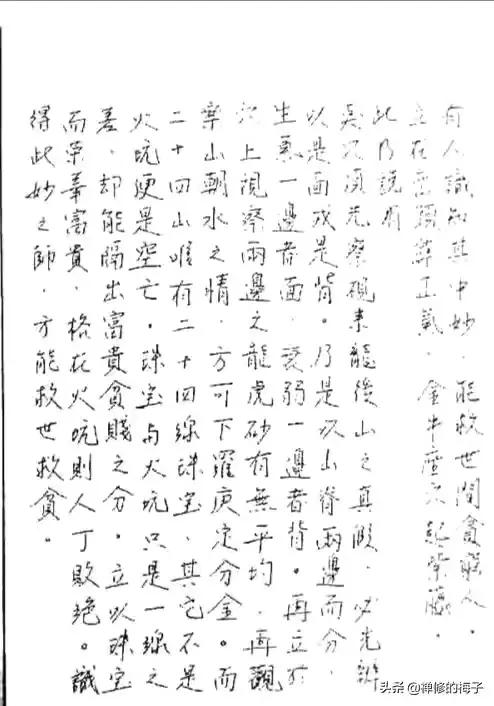 有人識知其中妙．能救世間貧窮人。
立在巒頭葬正氣．金牛
此乃說明
須先察視來龍後山之真假．必先辦
以是面或是背。乃是以山脊兩邊而分．
生氣一邊者面．衰弱一邊者背。再立於
穴上視察兩邊之龍虎砂有無平均．再觀
案山朝水之情．方可下羅庚定分金。而
二十四山唯有二十四線珠宝．其它不是
火坑便是空亡。珠宝与火坑只是一線之
差．却能隔出富貴貧賤之分。立以珠宝
而榮華富貴．格在火坑則人丁敗絕。識
得此妙之師．方能救世救貧。
头条 @禅修的梅子